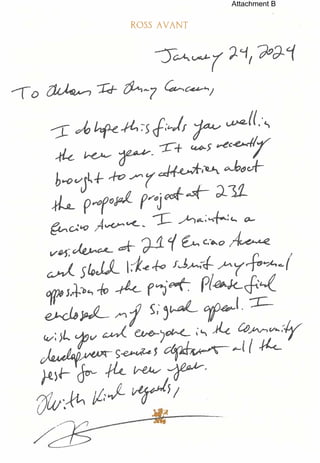 Attachment B
ROSS AVANT
January 24, 2024
To Whom It May Concern,
I do hope this finds you well in
the new year. It was recently
brought to my attention about
the proposed project at 231
Encino Avenue. I maintain a
residence at 219 Encino Avenue
and should like to submit my formal
opposition to the project. Please find
enclosed my signed appeal. I
wish you and everyone in the community
development services department all the
best for the new year.
With kind regards,